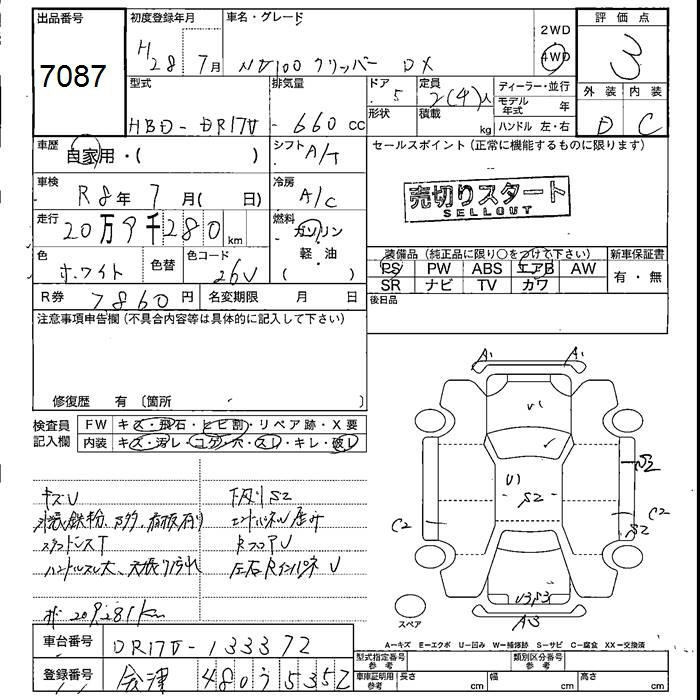 出品番号
7087
初度登録年月
H 28 7月
車名・グレード
NV100 クリッパー DX
2WD
4WD
評価点
3
外装 内装
D C
型式
HBD-DR17V
排気量
660 cc
ドア
5
形状
定員
2(4)人
積載
kg
ディーラー・並行
モデル年式 年
ハンドル 左・右
車歴
自家用・( )
シフト
A/T
セールスポイント(正常に機能するものに限ります)
売切りスタート
SELLOUT
車検
R8年 7月( 日)
冷房
A/C
走行
20万9千280 km
燃料
ガソリン
軽・油
( )
色
ホワイト
色替
色コード
26U
R券 7860円
名変期限 月 日
装備品(純正品に限り○をつけて下さい)
新車保証書
PS PW ABS エアB AW
SR ナビ TV カワ
有・無
後日品
注意事項申告欄(不具合内容等は具体的に記入して下さい)
修復歴 有 〔箇所
検査員記入欄
FW キズ・飛石・ヒビ割・リペア跡・X要
内装 キズ・汚レ・コゲ・穴・スレ・キレ・破レ
キズU
下廻りS2
スタッドレスT
RフロアU
ハンドルスレ大、天張り汚れ
209,281Km
A1 A1
U1
U1
S2
S2
C2 C2
S2
U3S3
A3
スペア
A=キズ E=エクボ U=凹み W=補修跡 S=サビ C=腐食 XX=交換済
車台番号
DR17V-133372
登録番号
会津 480 う 5352
型式指定番号 参考
類別区分番号 参考
車庫証明用 参考
長さ cm
幅 cm
高さ cm